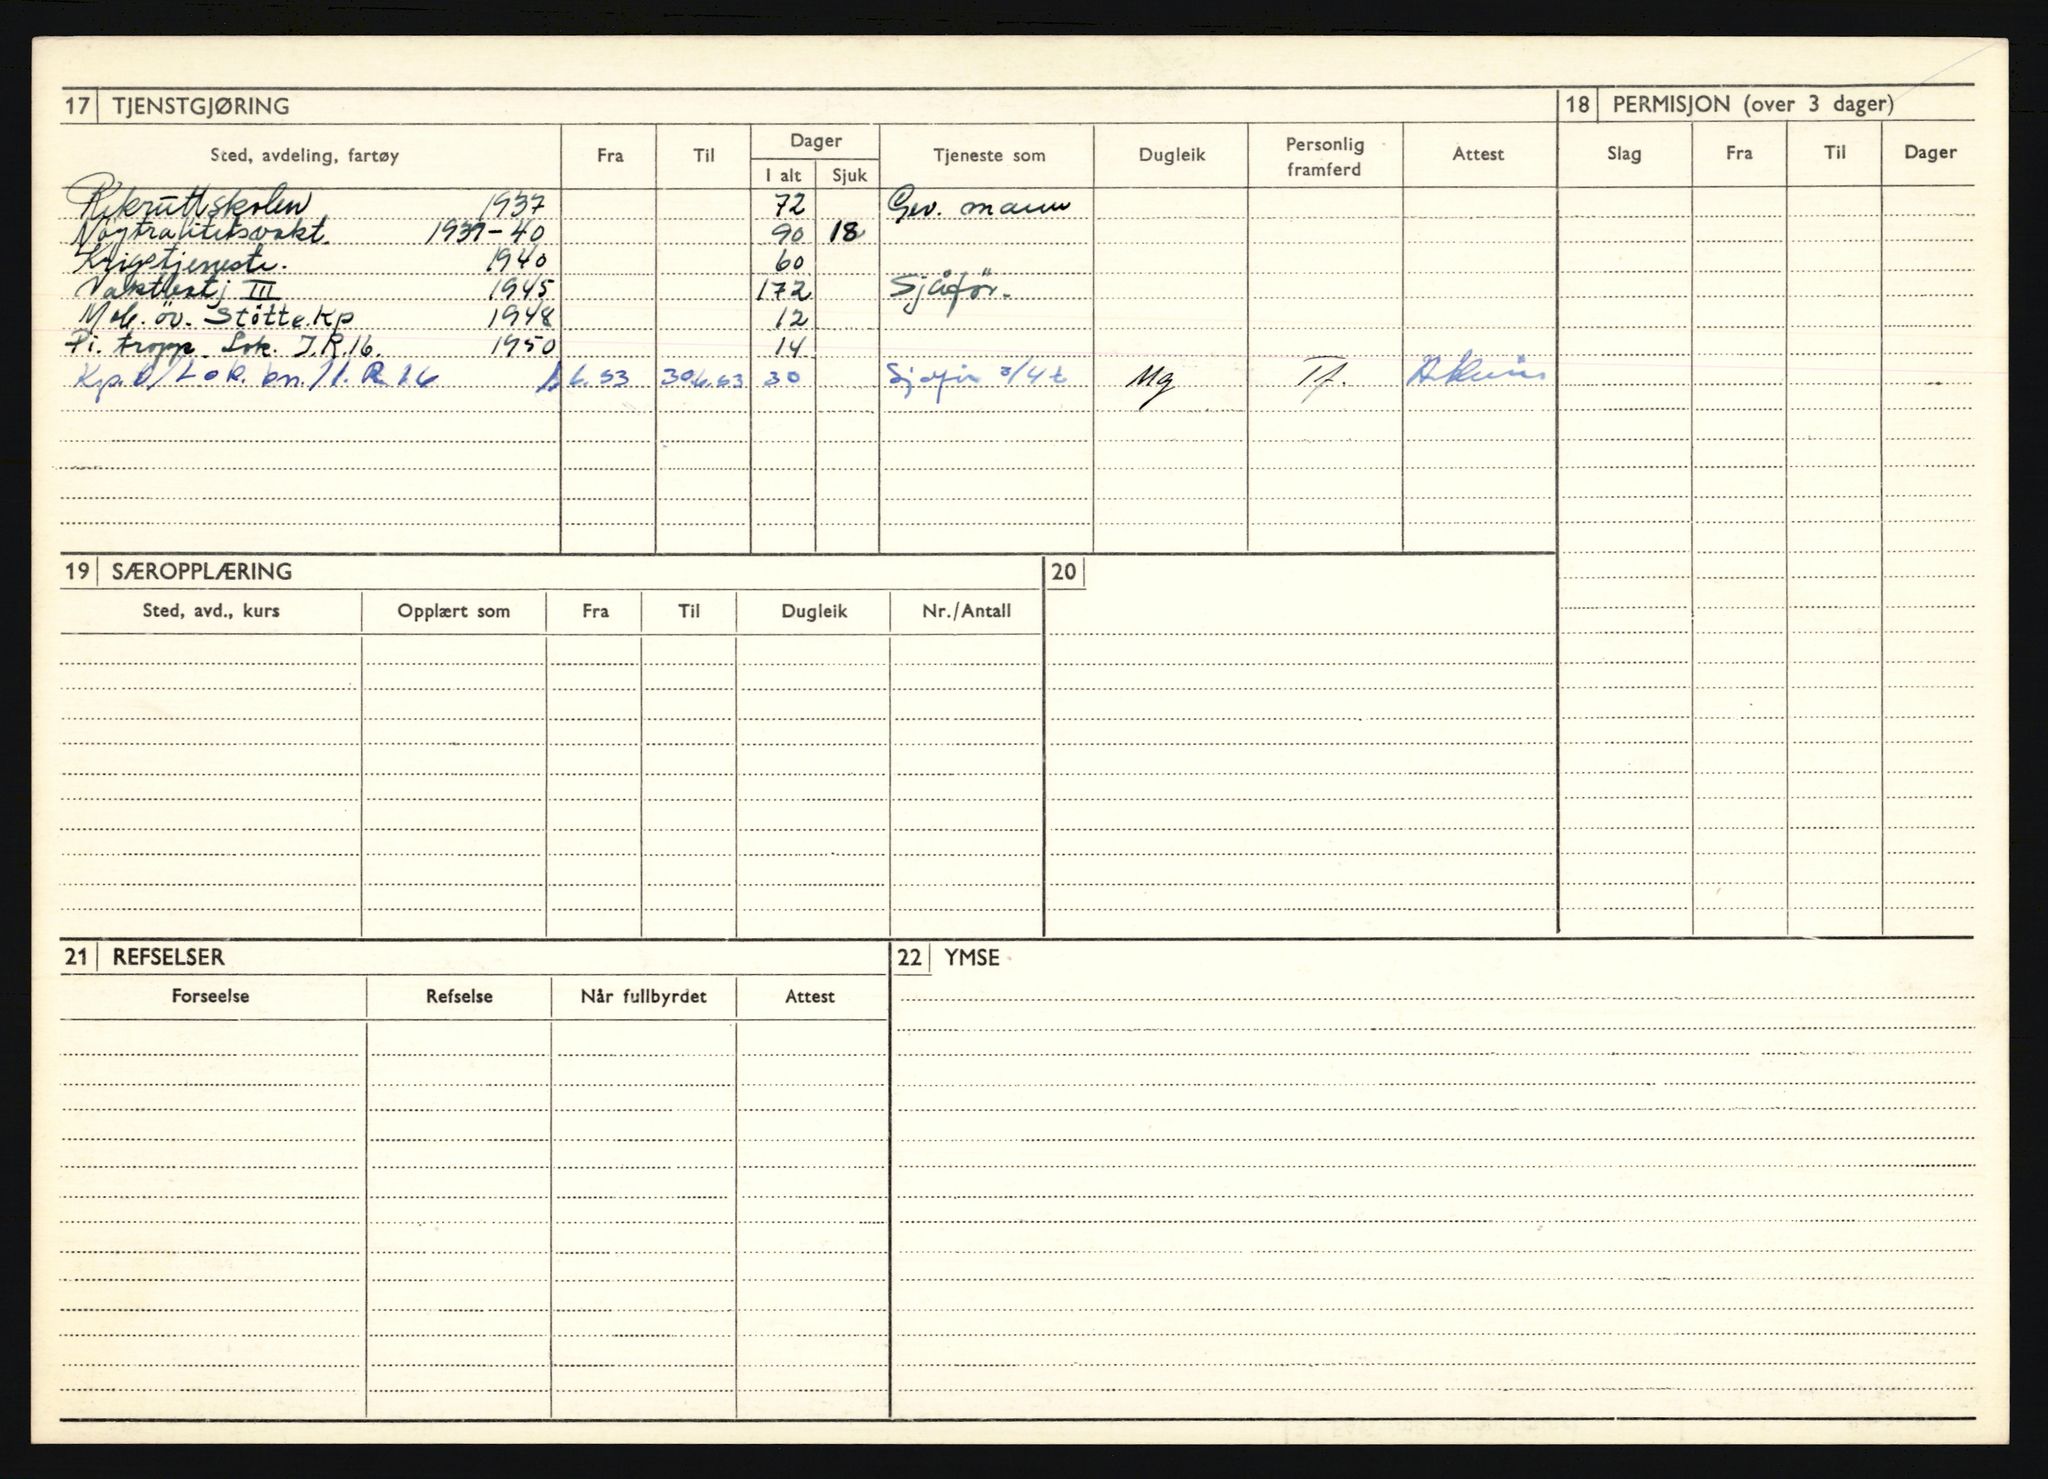 17 TJENSTGJØRING
18 PERMISJON (over 3 dager)
Sted, avdeling, fartøy Fra Til Dager I alt Sjuk Tjeneste som Dugleik Personlig framferd Attest
Slag Fra Til Dager
Rekruttskolen 1937 72 Gev. mann
Nøytralitetsvakt. 1939-40 90 18
Krigstjeneste. 1940 60
Vaktbatj III 1945 172 Sjåför.
Mob. öv. Stötte.Kp 1948 12
Pi. tropp Lok. I.R.16. 1950 14
Kp. Lok. bn. I.R 16 6.53 30.6.53 30 Sjåför 3/4 t Mg Tf.
19 SÆROPPLÆRING
20
Sted, avd., kurs Opplært som Fra Til Dugleik Nr./Antall
21 REFSELSER
22 YMSE
Forseelse Refselse Når fullbyrdet Attest